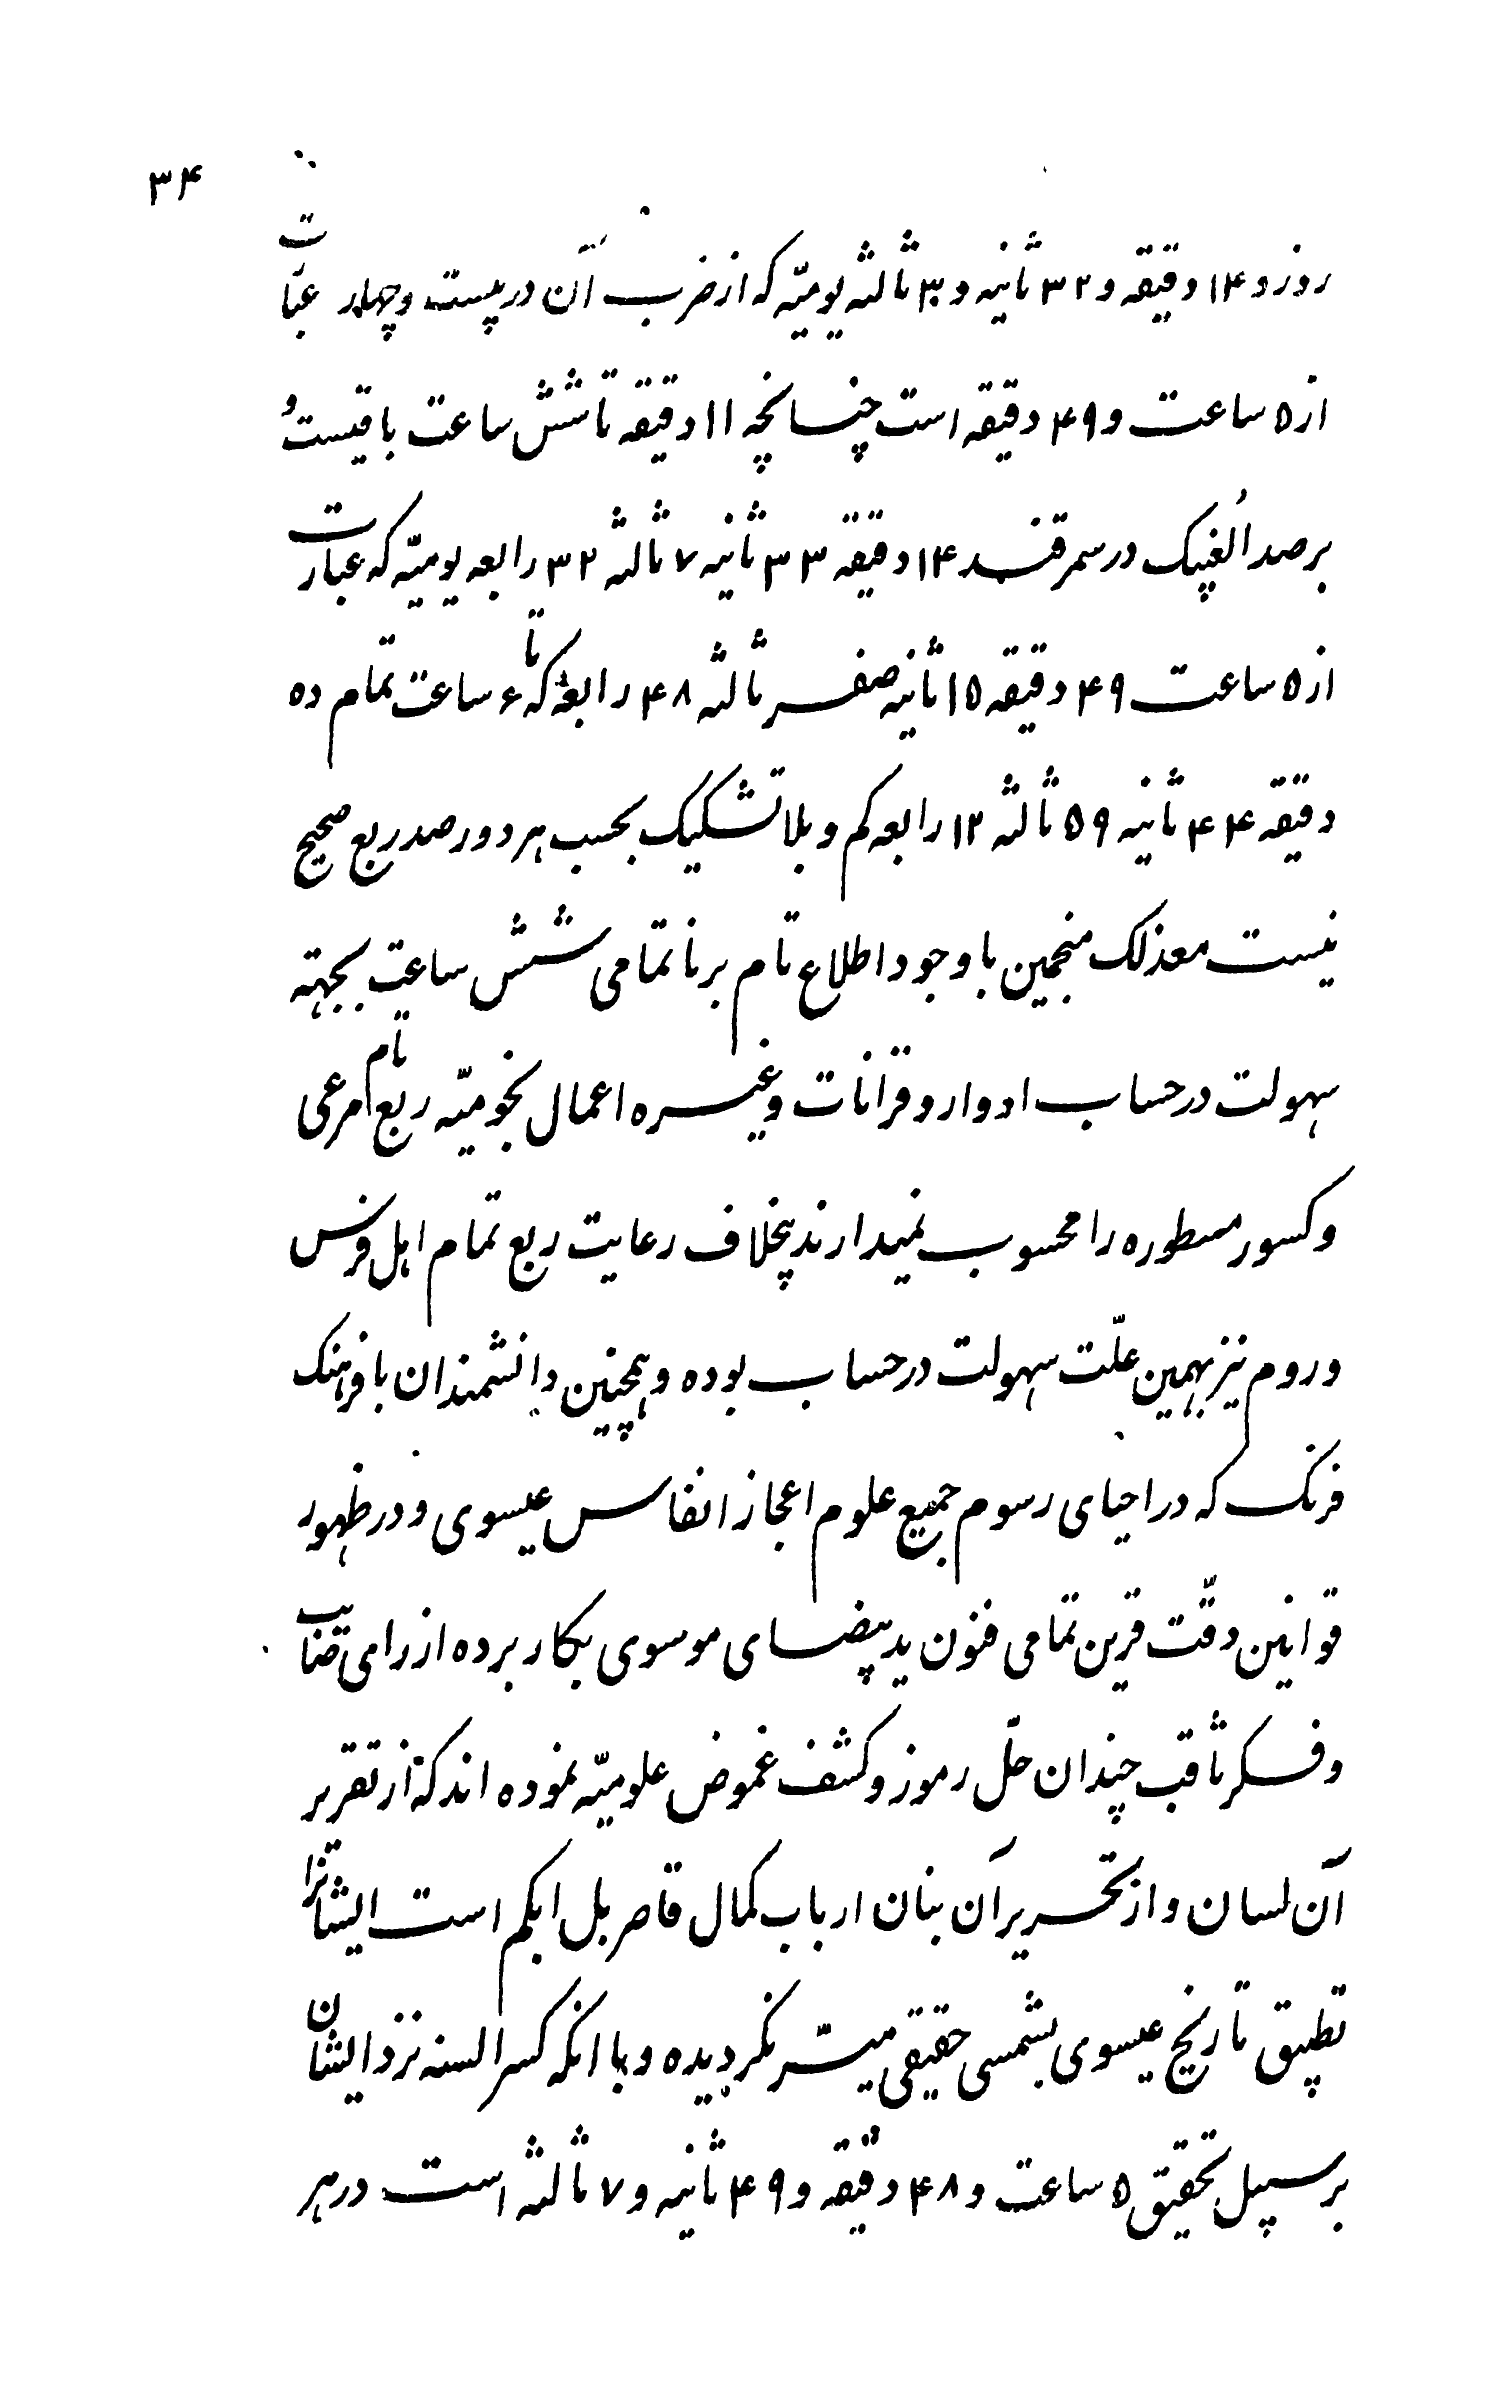 ۳۴
روز و ۱۴ دقیقه و ۳۲ ثانیه و ۳۰ ثالثه یومیّه که از ضرب آن در بیست و چهار عبارت
از ۵ ساعت و ۴۹ دقیقه است چنانچه ۱۱ دقیقه تا شش ساعت باقیست و
برصد الُغبیک در سمرقند ۱۴ دقیقه ۳۳ ثانیه ۷ ثالثه ۳۲ رابعه یومیّه که عبارت
از ۵ ساعت ۴۹ دقیقه ۱۵ ثانیه صفر ثالثه ۴۸ رابعه که تا ۶ ساعت تمام ده
دقیقه ۴۴ ثانیه ۵۹ ثالثه ۱۲ رابعه کم و بلا تشکیک بحسب هر دو رصد ربع صحیح
نیست معذلک منجمین باوجود اطلاع تام بر ناتمامی شش ساعت بجهته
سهولت در حساب ادوار و قرانات و غیره اعمال نجومیّه ربع تام مرعی
و کسور مسطوره را محسوب نمیدارند بخلاف رعایت ربع تمام اهل فرنس
و روم نیز بهمین علّت سهولت در حساب بوده و همچنین دانشمندان بافرهنک
فرنک که در احیای رسوم جمیع علوم اعجاز انفاس عیسوی و در ظهور
قوانین دقّت قرین تمامی فنون ید بیضای موسوی بکار برده از رای صایب
و فکر ثاقب چندان حلّ رموز و کشف غموض علومیّه نموده اند که از تقریر
آن لسان و از تحریر آن بنان ارباب کمال قاصر بل ابکم است ایشانرا
تطبیق تاریخ عیسوی بشمسی حقیقی میسّر نکردیده و با انکه کسر السنه نزد ایشان
بر سبیل تحقیق ۵ ساعت و ۴۸ دقیقه و ۴۹ ثانیه و ۷ ثالثه است در هر